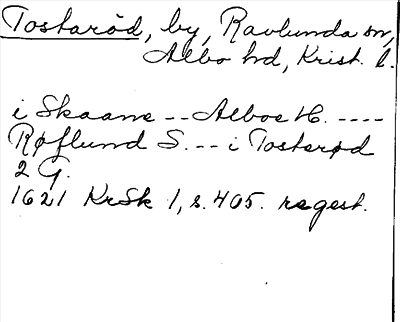 Tostaröd, by, Ravlunda sn,
Albo hd, Krist. l.
i Skaane -- Alboe H. ----
Røflund S. -- i Tosterød
2 G.
1621 KrSk 1, s. 405. regest.